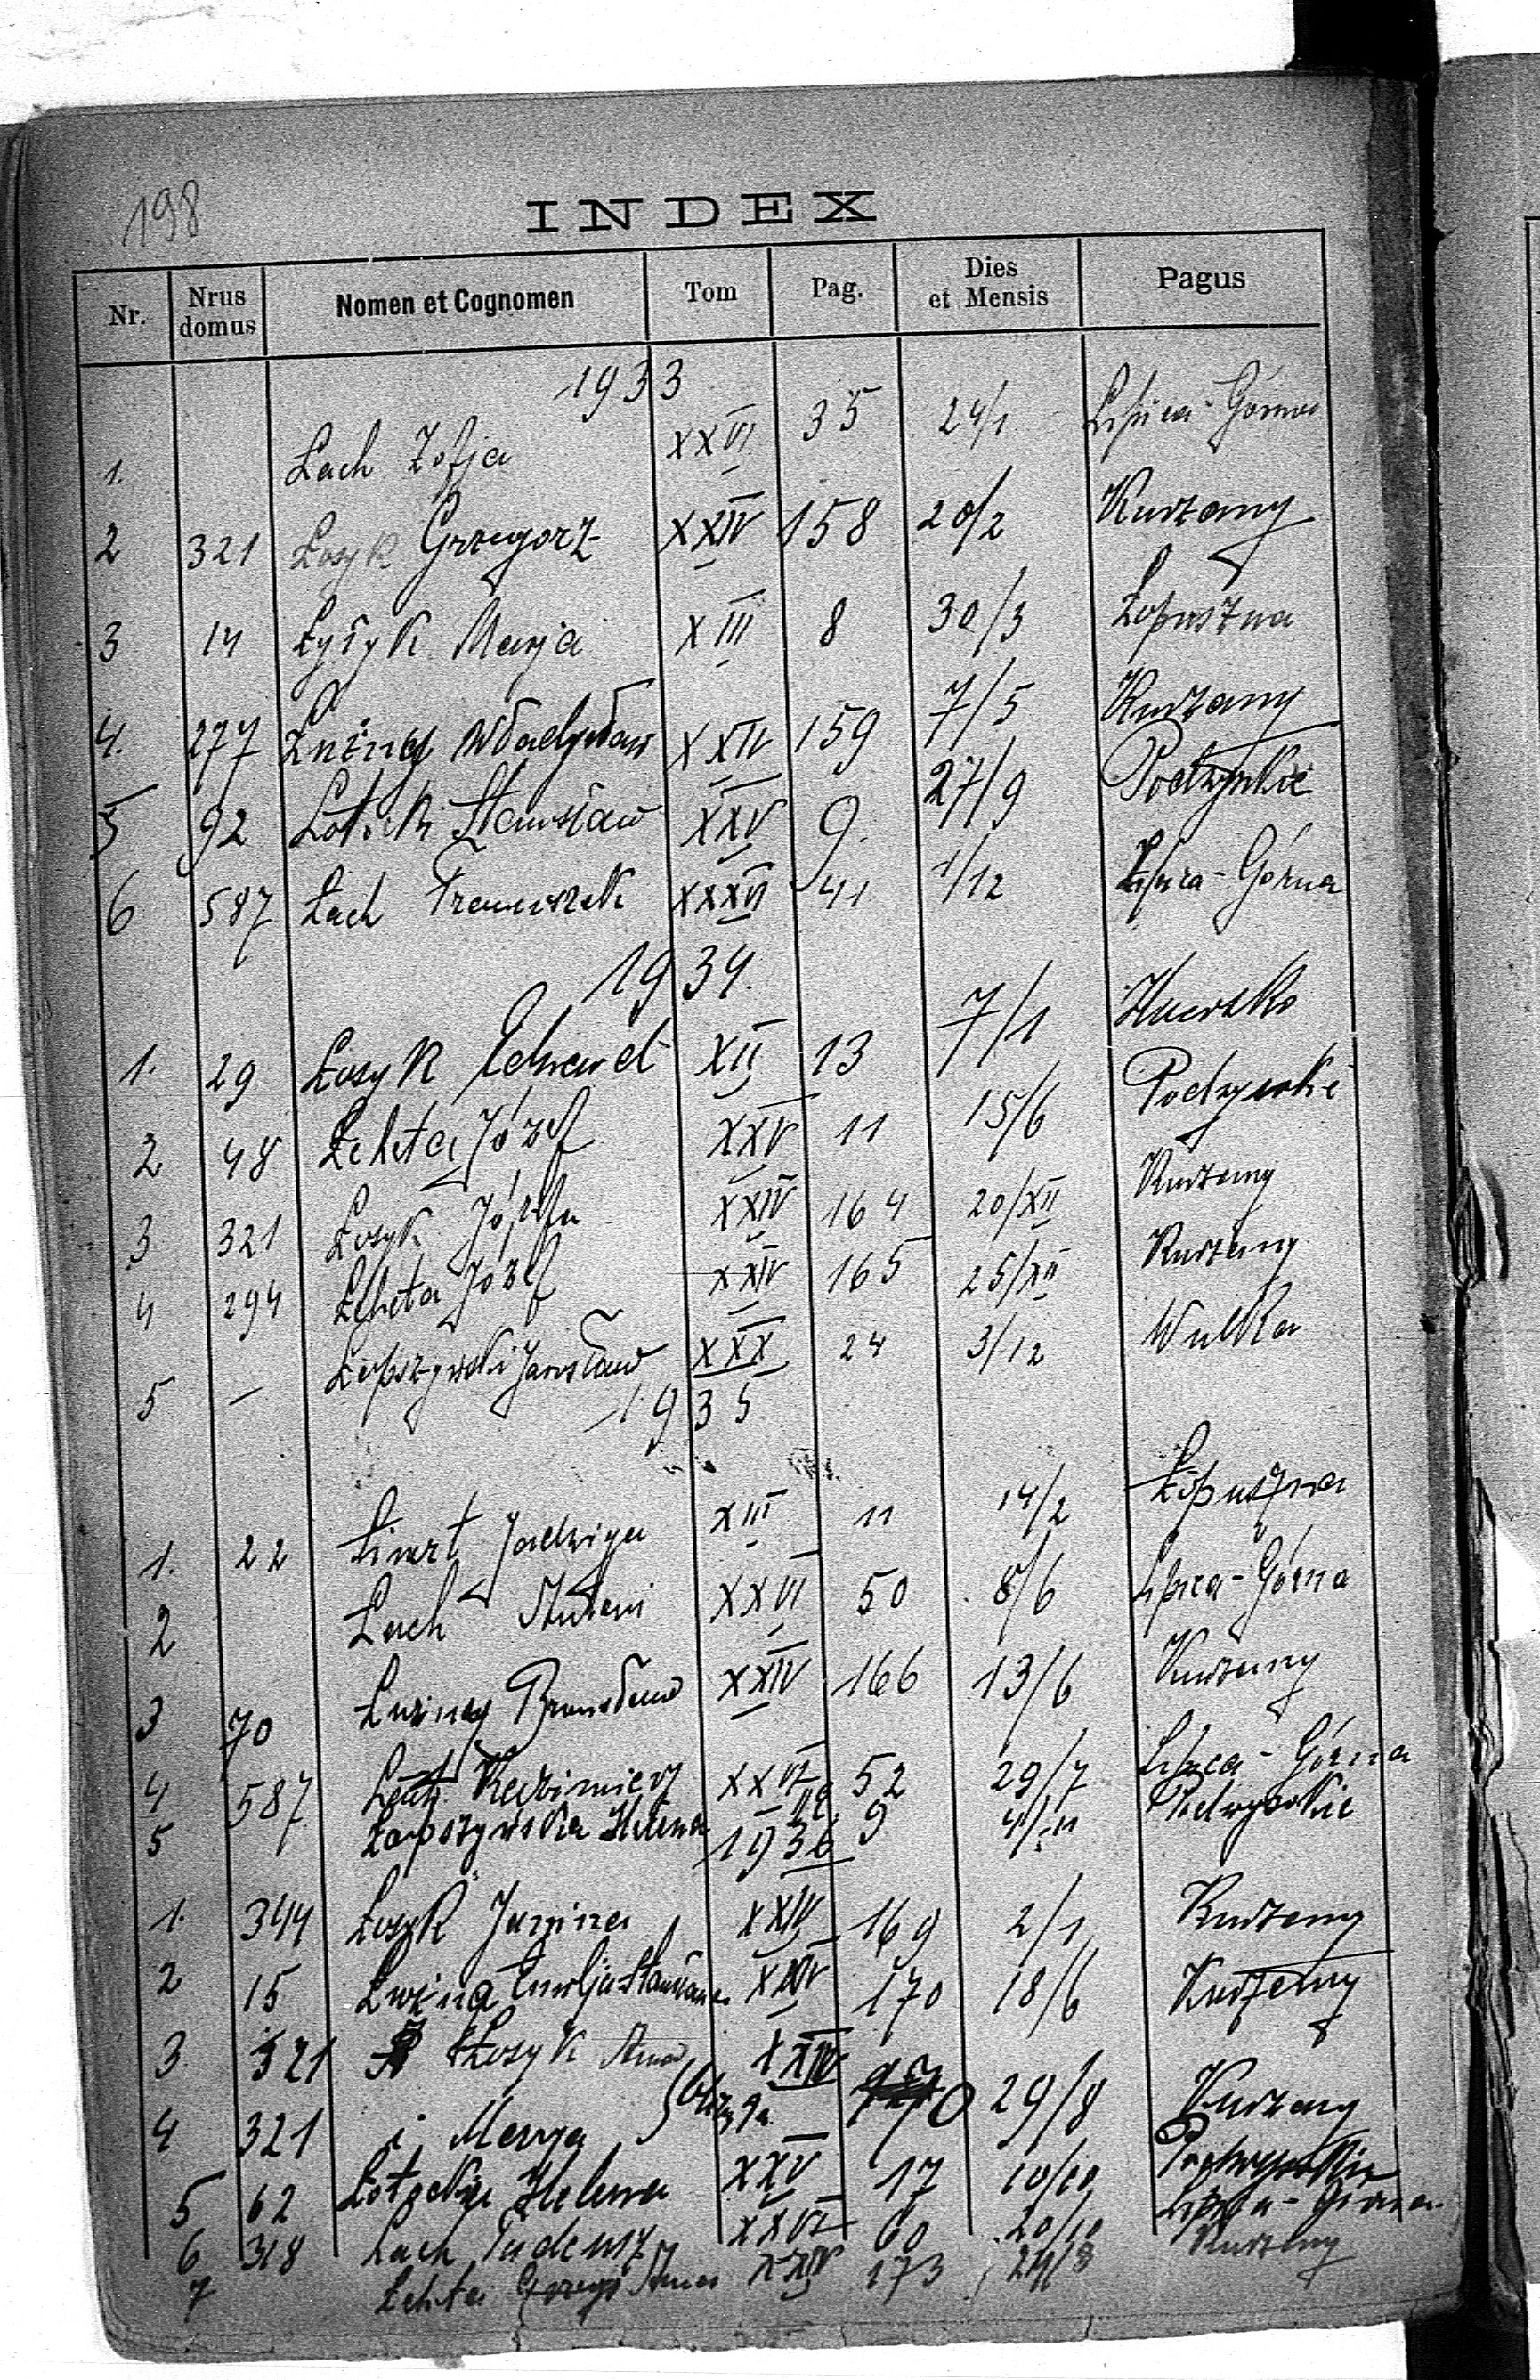 198
INDEX
Nr. Nrus domus Nomen et Cognomen Tom Pag. Dies et Mensis Pagus
1933
1. Łach Zofja XXVI 35 24/1 Lipica-Górna
2 321 Łosyk Grzegorz XXIV 158 20/2 Kurzany
3 14 Łysyk Marja XIII 8 30/3 Łopuszna
4. 277 Łuźny Władysław XXIV 159 7/5 Kurzany
5 92 Stanisław XXV 9. 27/9 Podwysokie
6 587 Łach Franciszek XXXVI 41 1/12 Lipica-Górna
1934.
1. 29 Łosyk Edward XII 13 7/1 Hucisko
2 48 Łeheta Józef XXV 11 15/6 Podwysokie
3 321 Łosyk Józefa XXIV 164 20/XII Kurzany
4 294 Łeheta Józef XXIV 165 25/XII Kurzany
5 — Łopszywski Jarosław XXX 24 3/12 Wulka
1935
1. 22 Jadwiga XIII 11 14/2 Łopuszna
2 Łach XXVI 50 8/6 Lipica-Górna
3 70 Łuźny Bronisław XXIV 166 13/6 Kurzany
4 587 Łach Kazimierz XXVI 52 29/7 Lipica-Górna
5 Łapszyńska Helena 9 Podwysokie
1936
1. 344 Łosyk Janina XXIV 169 2/1 Kurzany
2 15 Łuźna Emilja Stanisława XXIV 170 18/6 Kurzany
3. 321 Łosyk Anna XXIV
4 321 i Marya 29/8 Kurzany
5 62 Helena XXV 17 10/10 Podwysokie
6 318 Łach Tadeusz XXVI 60 20/10 Lipica-Górna
7 Łehta Anna XXIV 173 Kurzany